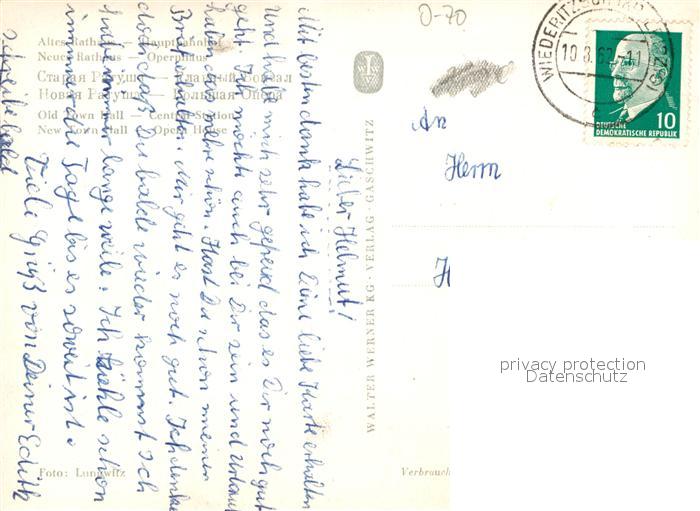 Altes Rathaus — Hauptbahnhof
Neues Rathaus — Opernhaus
Старая Ратуша — Главный Вокзал
Новая Ратуша — Большая Опера
Old Town Hall — Central Station
New Town Hall — Opera House
Lieber Helmut!
Mit bestem dank habe ich Deine liebe Karte erhalten
und habe mich sehr gefreut das es Dir noch gut
geht. Ich möchte auch bei Dir sein und Urlaub
haben wäre schön. Hast Du schon meinen
Brief erhalten. Mir geht es noch gut. Ich denke
doch daß Du balde wieder kommst Ich
hab immer lange weile. Ich zähle schon
immer die Tage bis es soweit ist.
Viele Grüß von Deiner Edith
schreibe bald
Foto: Lungwitz
WALTER WERNER KG · VERLAG · GASCHWITZ
0-70
WIEDERITZSCH
10.8.62-11
DEUTSCHE
DEMOKRATISCHE REPUBLIK
10
An
Herrn
H
privacy protection
Datenschutz
Verbrauch